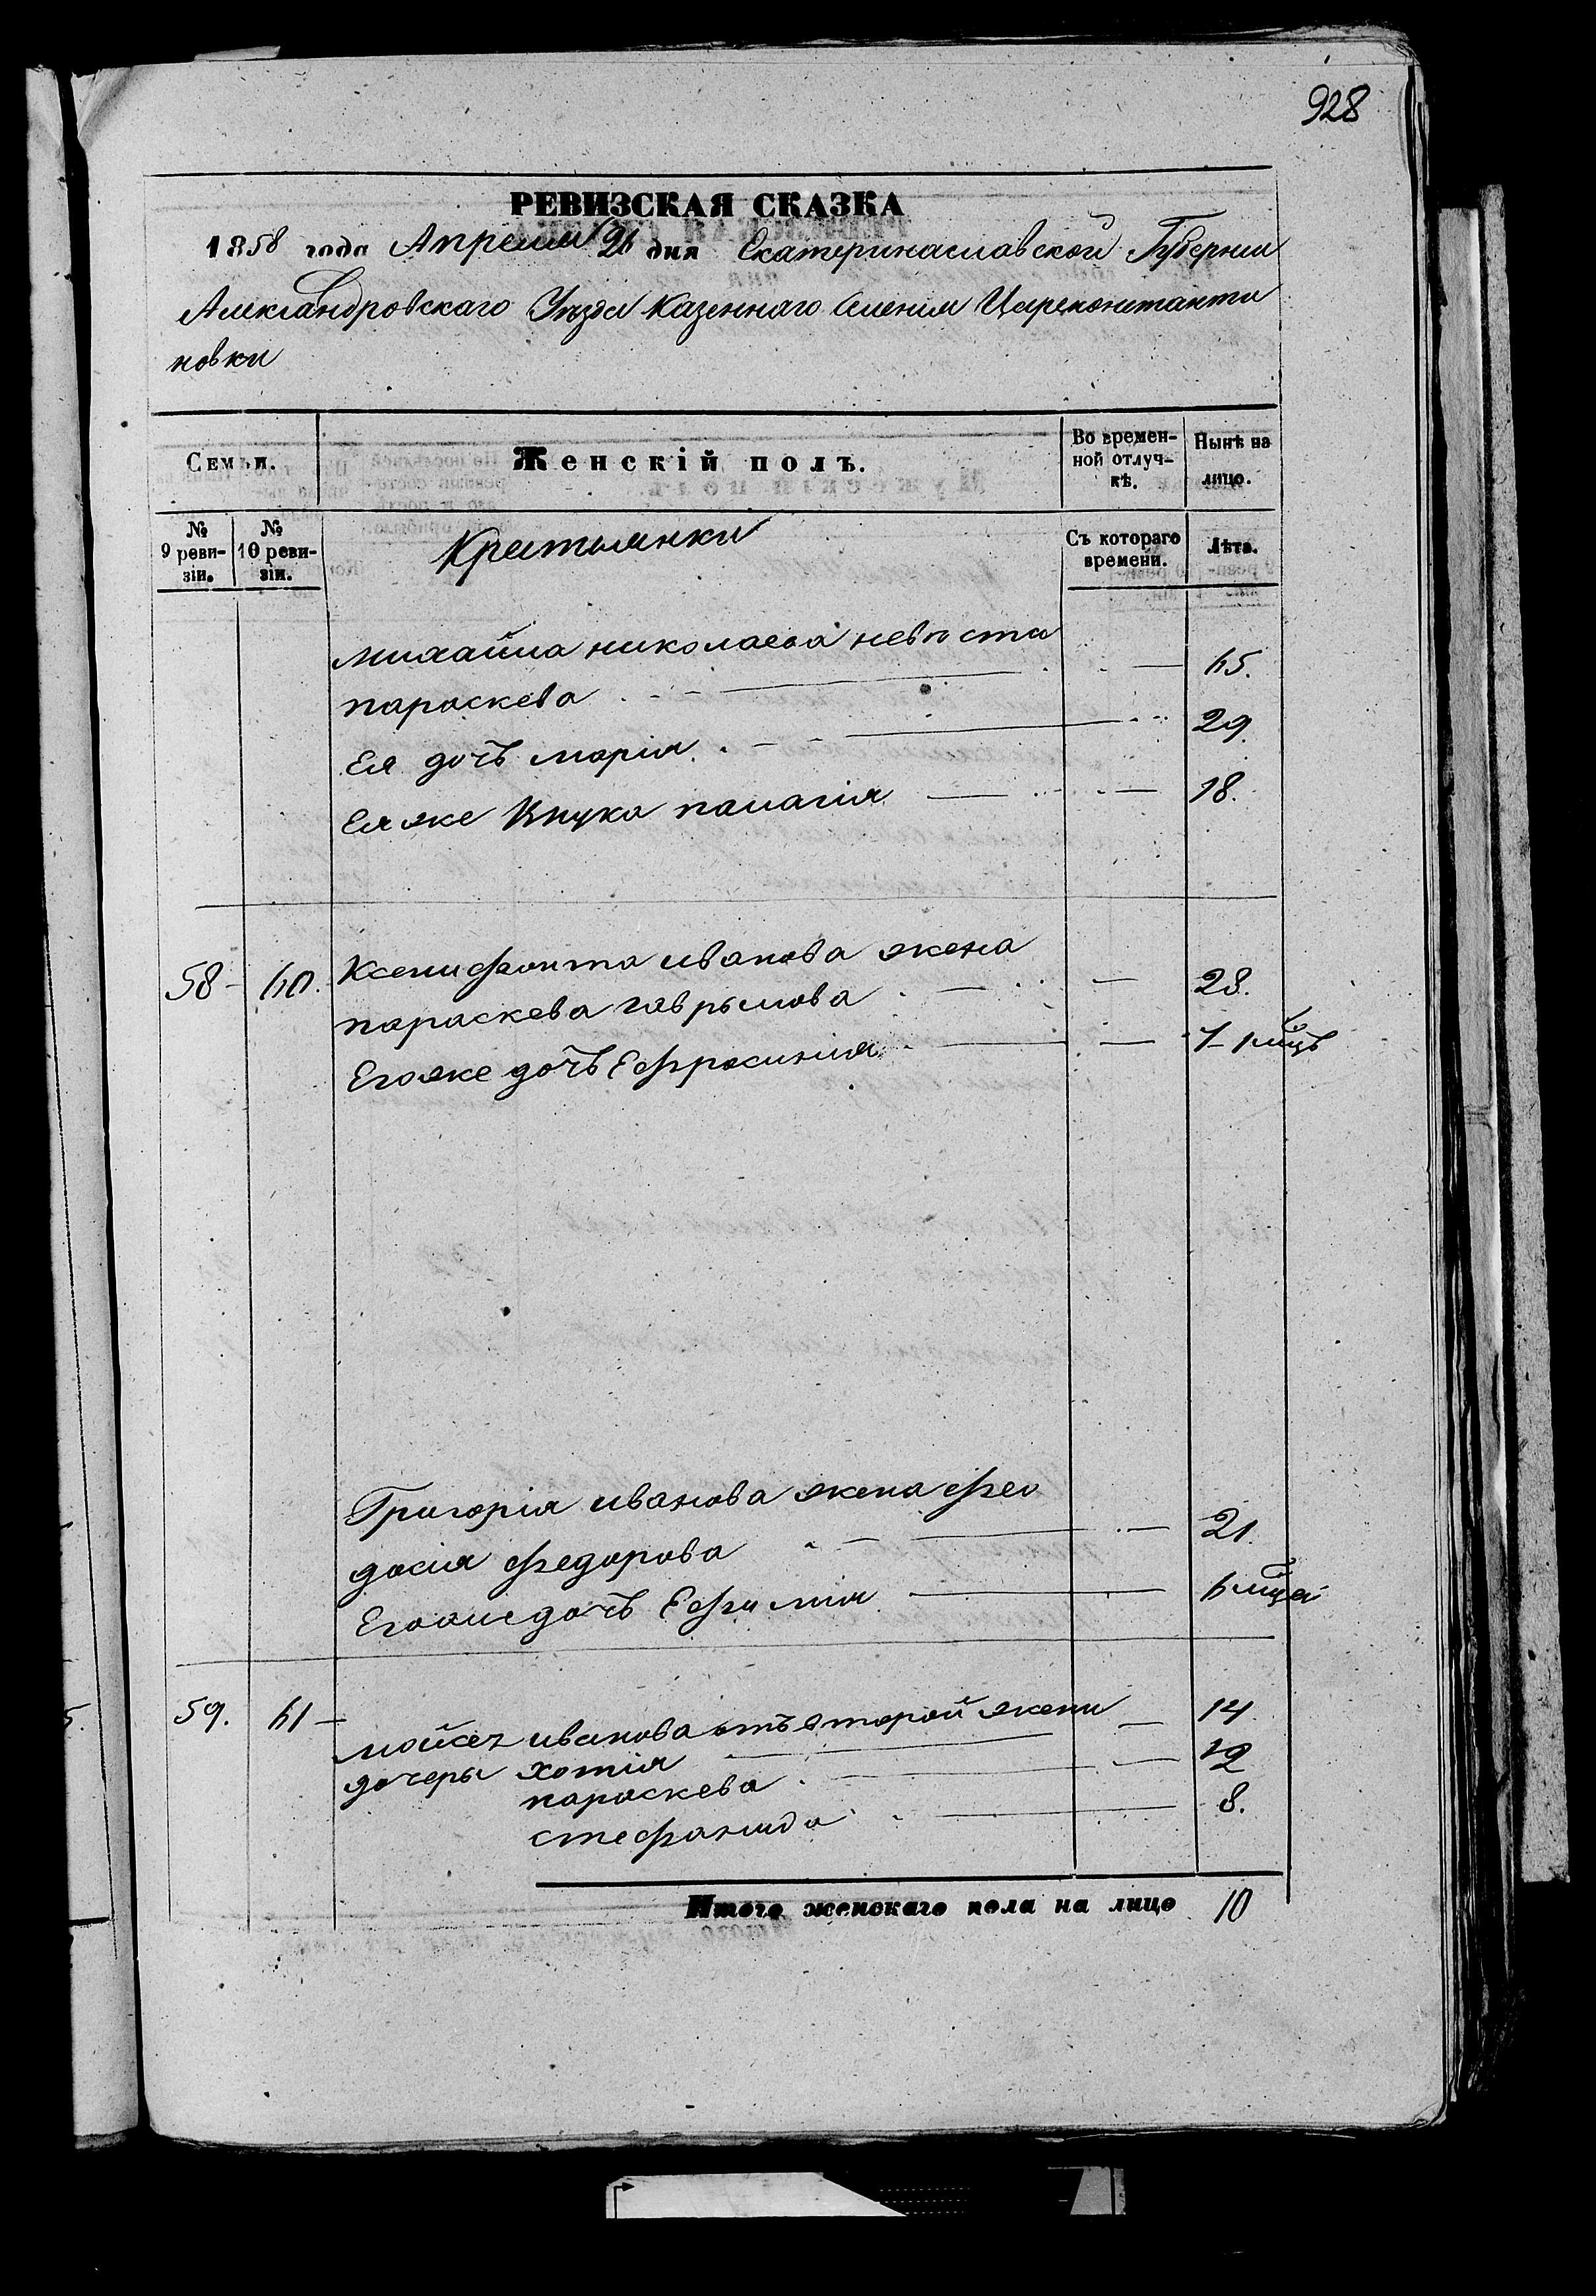 928
РЕВИЗСКАЯ СКАЗКА
1858 года Апреля 26 дня Екатеринаславской Губернии
Александровскаго Уезда Казеннаго Селения Цареконстанти
новки
Семьи.
Женскій полъ.
Во времен-
ной отлуч-
кѣ.
Нынѣ на
лицо.
№
9 реви-
зіи.
№
10 реви-
зіи.
Крестьянки
Съ котораго
времени.
Лѣта.
Михайла николаева невѣстка
параскева 65.
Ея дочь марія 29.
Ея же Внука палагія 18.
58 60. Ксенифонта иванова жена
параскева гаврылова 28.
Егоже дочь Ефросинія 1 1 мцъ
Григорія иванова жена фео
досия федорова 21.
Егоже дочь Ефимия 6 мцей
59. 61 мойсея иванова отъ второй жены
дочеры хотія 14
параскева 12
стефанида 8.
Итого женскаго пола на лицо 10